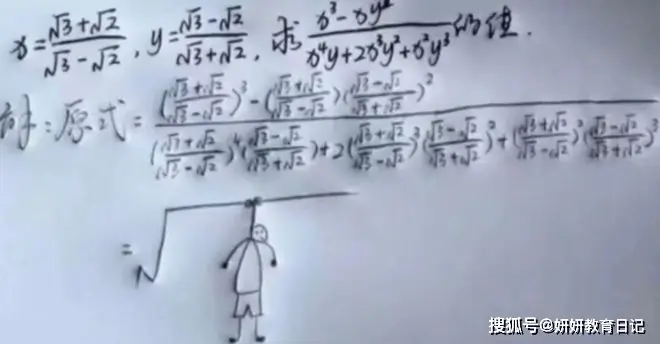 x=\frac{\sqrt{3}+\sqrt{2}}{\sqrt{3}-\sqrt{2}}, y=\frac{\sqrt{3}-\sqrt{2}}{\sqrt{3}+\sqrt{2}}, 求 \frac{x^3-xy^2}{x^4y+2x^3y^2+x^2y^3} 的值.
解:原式=\frac{(\frac{\sqrt{3}+\sqrt{2}}{\sqrt{3}-\sqrt{2}})^3-(\frac{\sqrt{3}+\sqrt{2}}{\sqrt{3}-\sqrt{2}})(\frac{\sqrt{3}-\sqrt{2}}{\sqrt{3}+\sqrt{2}})^2}{(\frac{\sqrt{3}+\sqrt{2}}{\sqrt{3}-\sqrt{2}})^4(\frac{\sqrt{3}-\sqrt{2}}{\sqrt{3}+\sqrt{2}})+2(\frac{\sqrt{3}+\sqrt{2}}{\sqrt{3}-\sqrt{2}})^3(\frac{\sqrt{3}-\sqrt{2}}{\sqrt{3}+\sqrt{2}})^2+(\frac{\sqrt{3}+\sqrt{2}}{\sqrt{3}-\sqrt{2}})^2(\frac{\sqrt{3}-\sqrt{2}}{\sqrt{3}+\sqrt{2}})^3}
=√
搜狐号@妍妍教育日记